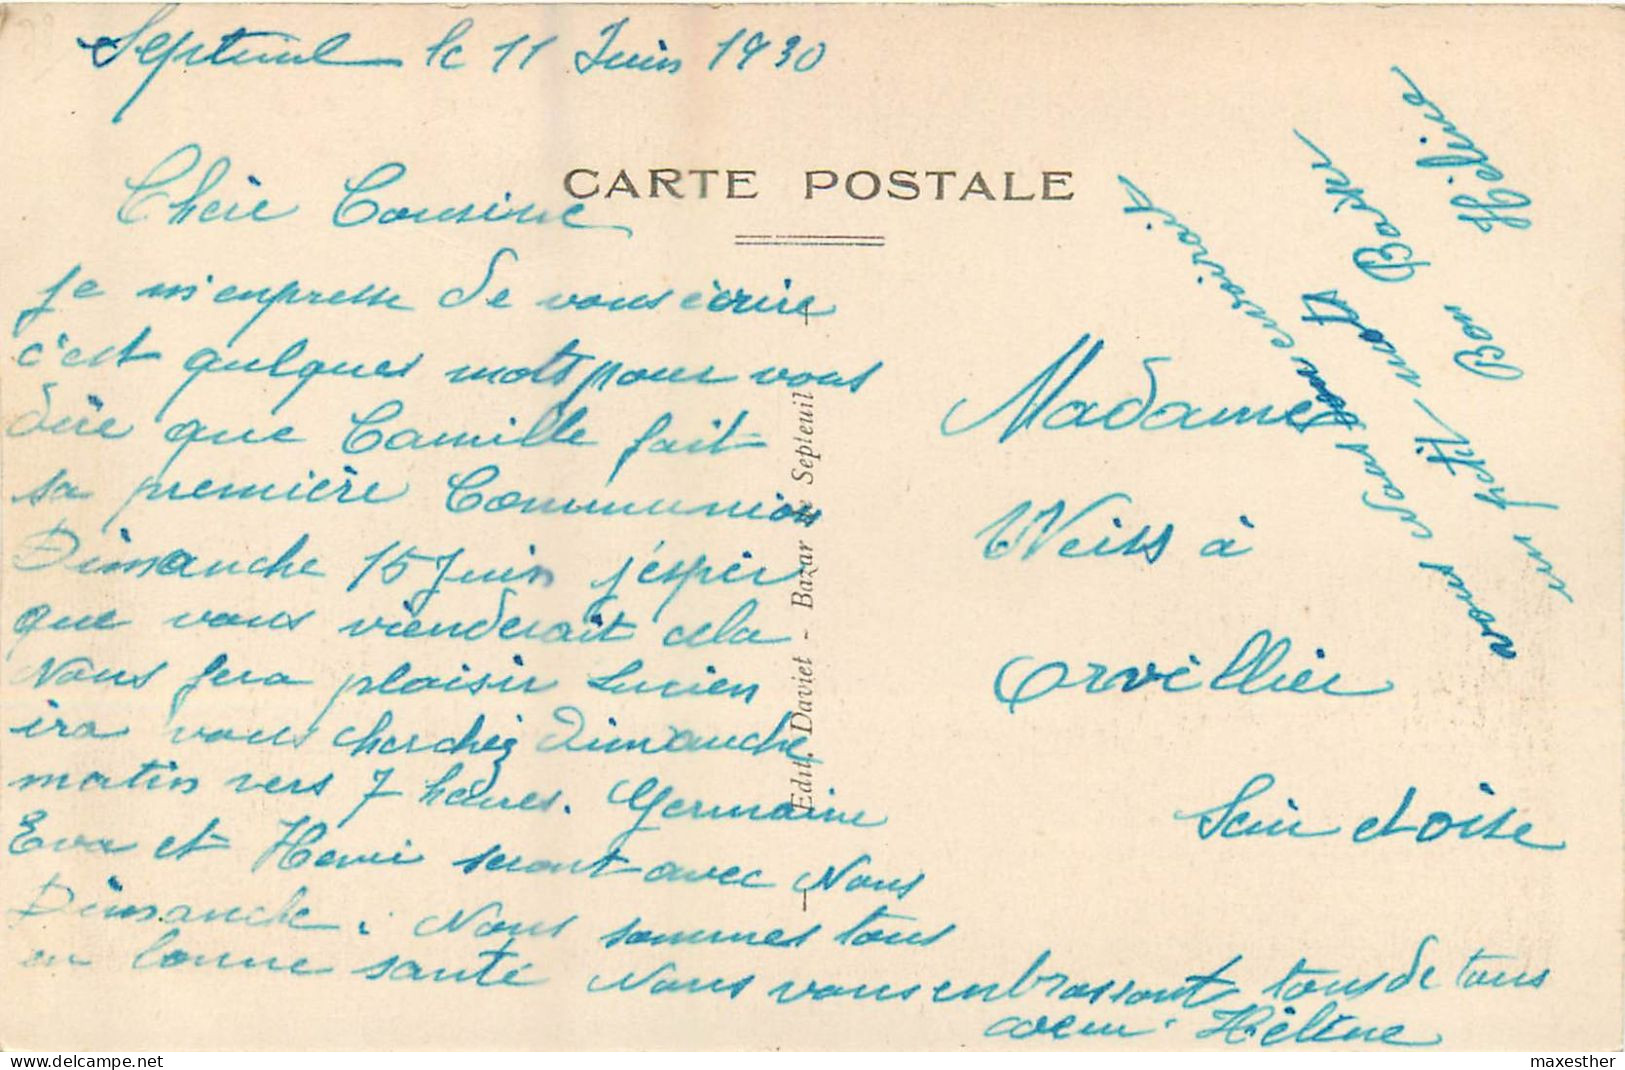 Septeuil le 11 Juin 1930
CARTE POSTALE
Chère Cousine
je m'enpresse de vous écrire
c'est quelques mots pour vous
dire que Camille fait
sa première Communion
Dimanche 15 Juin j'espèr
que vous vienderait cela
Nous fera plaisir Lucien
ira vous cherchéz dimanche
matin vers 7 heures. Germaine
Eva et Henri seront avec Nous
Dimanche. Nous sommes tous
en bonne santé Nous vous enbrassont tous de tous
coeur. Hélène
Edit. Daviet - Bazar de Septeuil
Madame
Weiss à
Orvillier
Sein et oise
vous nous envoirait
un petit mots
Bon Baiser
Hélène